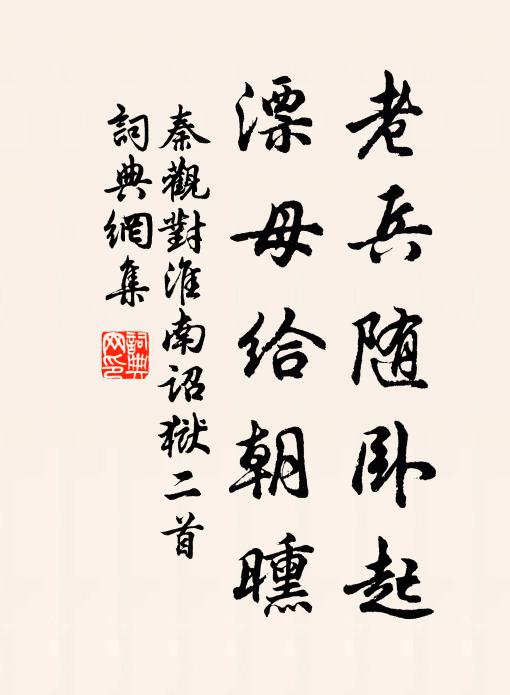 老兵随卧起
漂母给朝曛
秦觀對淮南诏狱二首
詞典網集
詞典网印